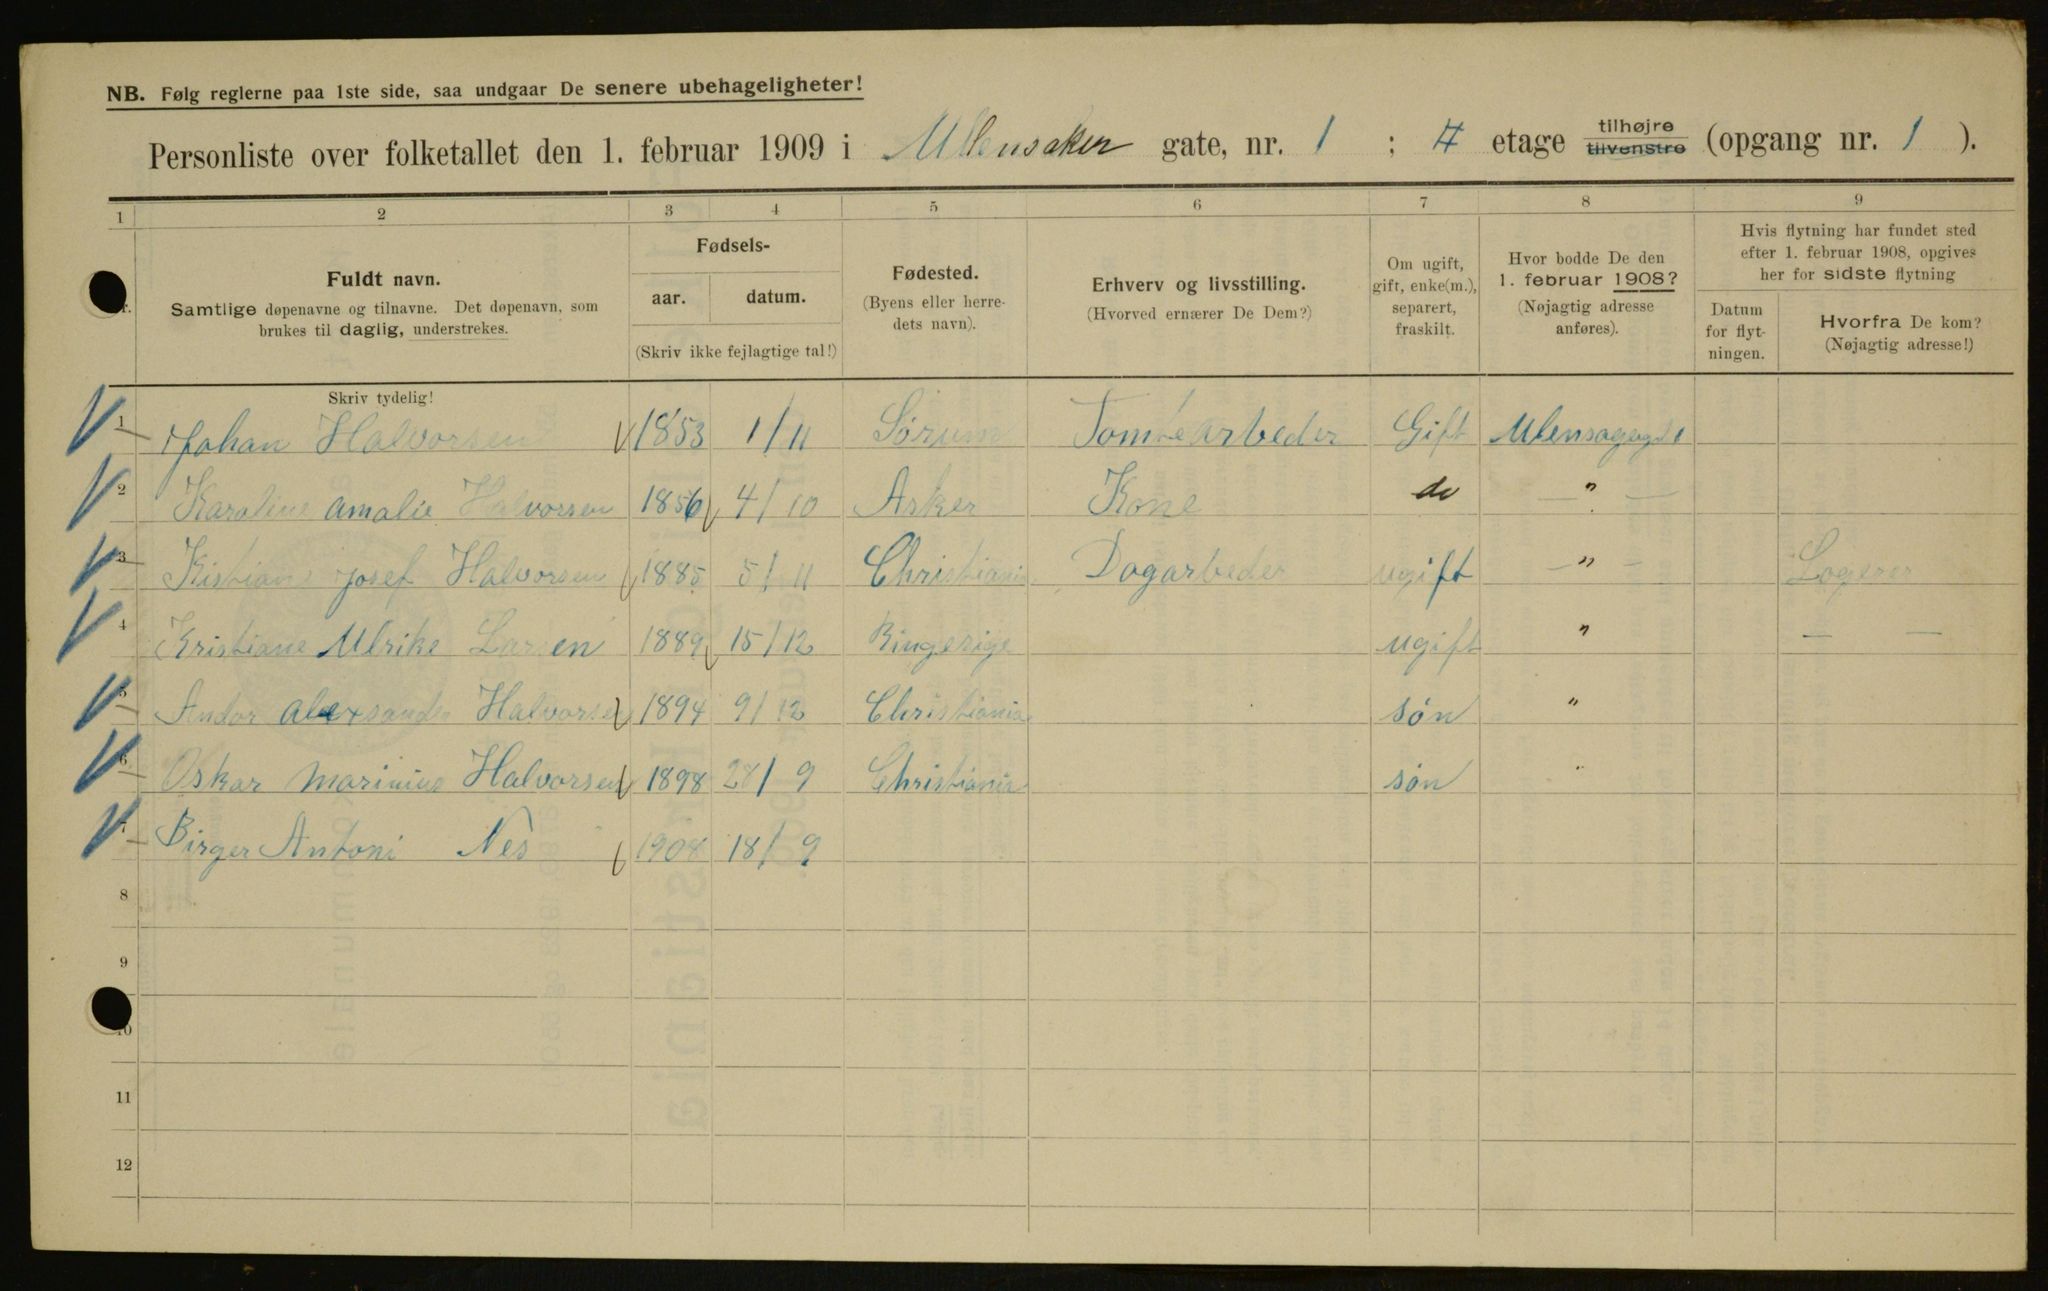 NB. Følg reglerne paa 1ste side, saa undgaar De senere ubehageligheter!
Personliste over folketallet den 1. februar 1909 i Ullensaker gate, nr. 1 ; 4 etage tilhøjre tilvenstre (opgang nr. 1 ).
1 2 3 4 5 6 7 8 9
Fuldt navn.
Samtlige døpenavne og tilnavne. Det døpenavn, som
brukes til daglig, understrekes.
Fødsels-
aar. datum.
(Skriv ikke fejlagtige tal!)
Fødested.
(Byens eller herre-
dets navn).
Erhverv og livsstilling.
(Hvorved ernærer De Dem?)
Om ugift,
gift, enke(m.),
separert,
fraskilt.
Hvor bodde De den
1. februar 1908?
(Nøjagtig adresse
anføres).
Hvis flytning har fundet sted
efter 1. februar 1908, opgives
her for sidste flytning
Datum
for flyt-
ningen.
Hvorfra De kom?
(Nøjagtig adresse!)
Skriv tydelig!
1 Johan Halvorsen 1853 1/11 Sørum Tomtearbeder Gift Ulensagergd 1
2 Karoline Amalie Halvorsen 1856 4/10 Asker Kone do — " —
3 Kistian Josef Halvorsen 1885 5/11 Christiania Dagarbeder ugift — " — Logerer
4 Kristiane Ulrike Larsen 1889 15/12 Ringerige ugift " — —
5 Andor Alexsander Halvorsen 1894 9/12 Christiania søn "
6 Oskar Marinius Halvorsen 1898 28/9 Christiania søn "
7 Birger Antoni Nes 1908 18/9
8
9
10
11
12